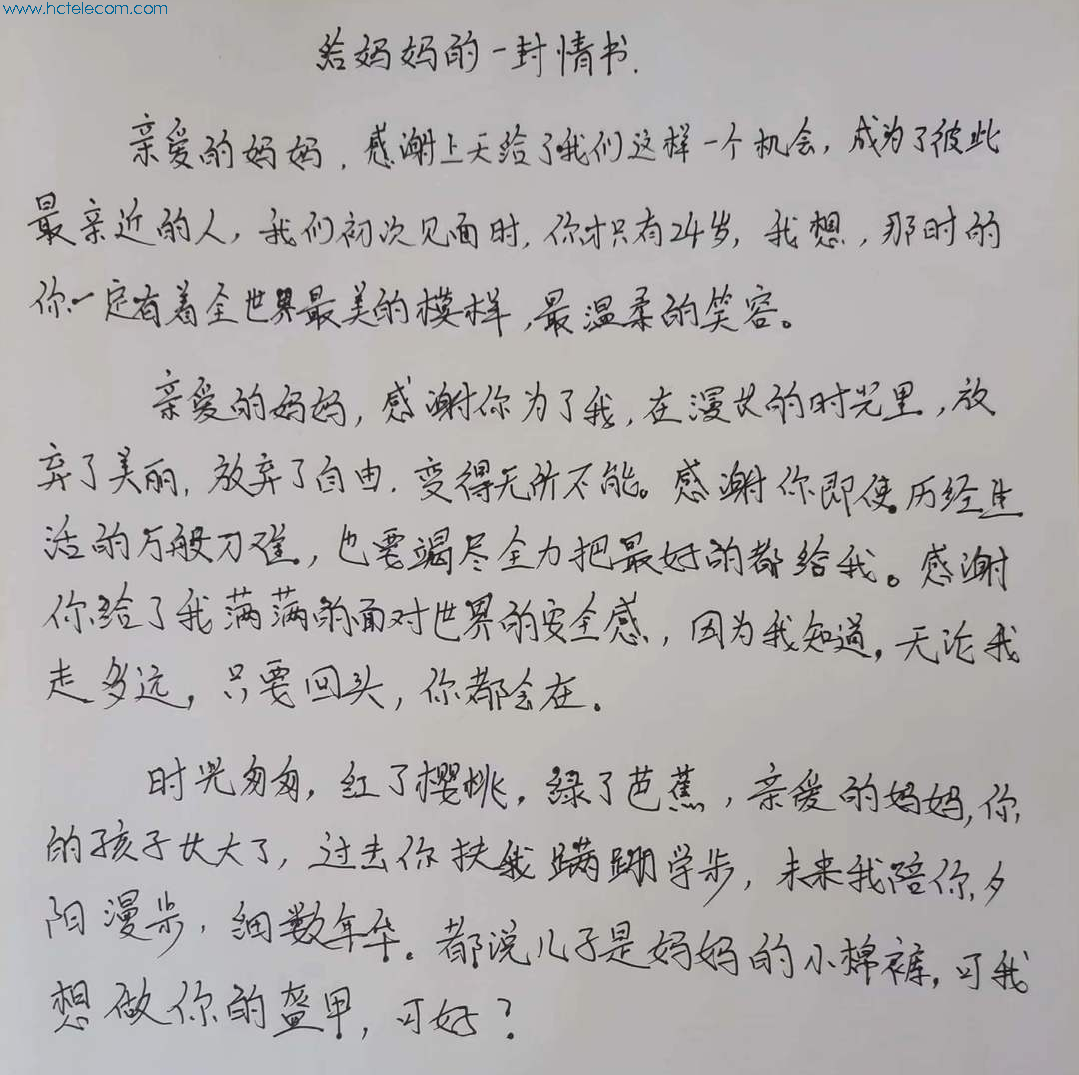 www.hctelecom.com
给妈妈的一封情书.
亲爱的妈妈，感谢上天给了我们这样一个机会，成为了彼此
最亲近的人，我们初次见面时，你才只有24岁，我想，那时的
你一定有着全世界最美的模样，最温柔的笑容。
亲爱的妈妈，感谢你为了我，在漫长的时光里，放
弃了美丽，放弃了自由，变得无所不能。感谢你即使历经生
活的万般刁难，也要竭尽全力把最好的都给我。感谢
你给了我满满的面对世界的安全感，因为我知道，无论我
走多远，只要回头，你都会在。
时光匆匆，红了樱桃，绿了芭蕉，亲爱的妈妈，你
的孩子长大了，过去你扶我蹒跚学步，未来我陪你夕
阳漫步，细数年华。都说儿子是妈妈的小棉裤，可我
想做你的盔甲，可好？